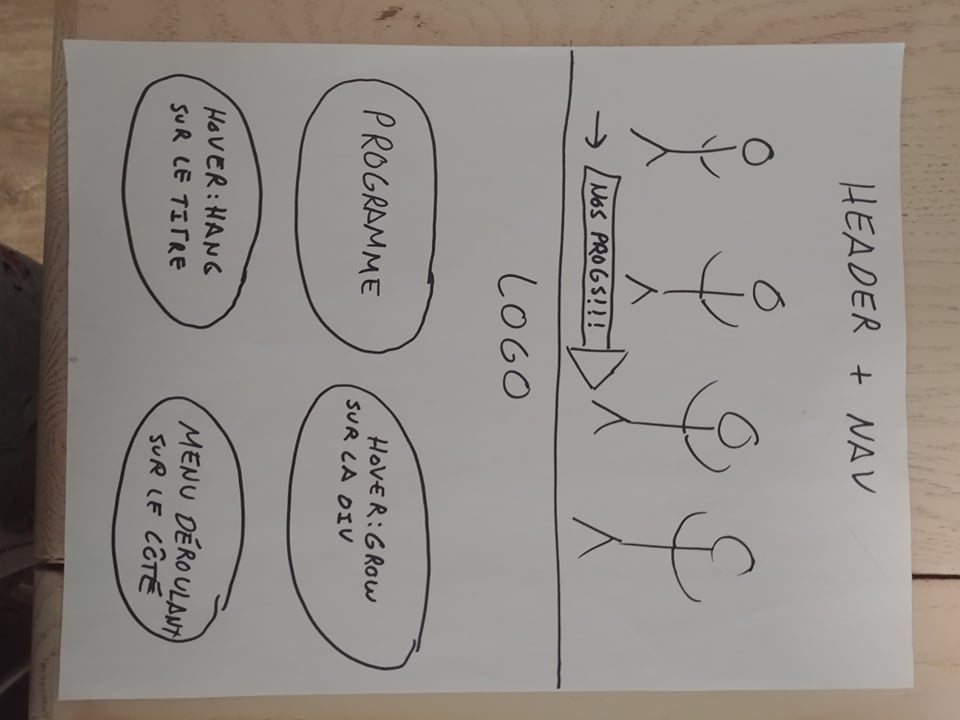 HEADER + NAV
NOS PROGS!!!
LOGO
PROGRAMME
HOVER: GROW
SUR LA DIV
HOVER: HANG
SUR LE TITRE
MENU DÉROULANT
SUR LE CÔTÉ